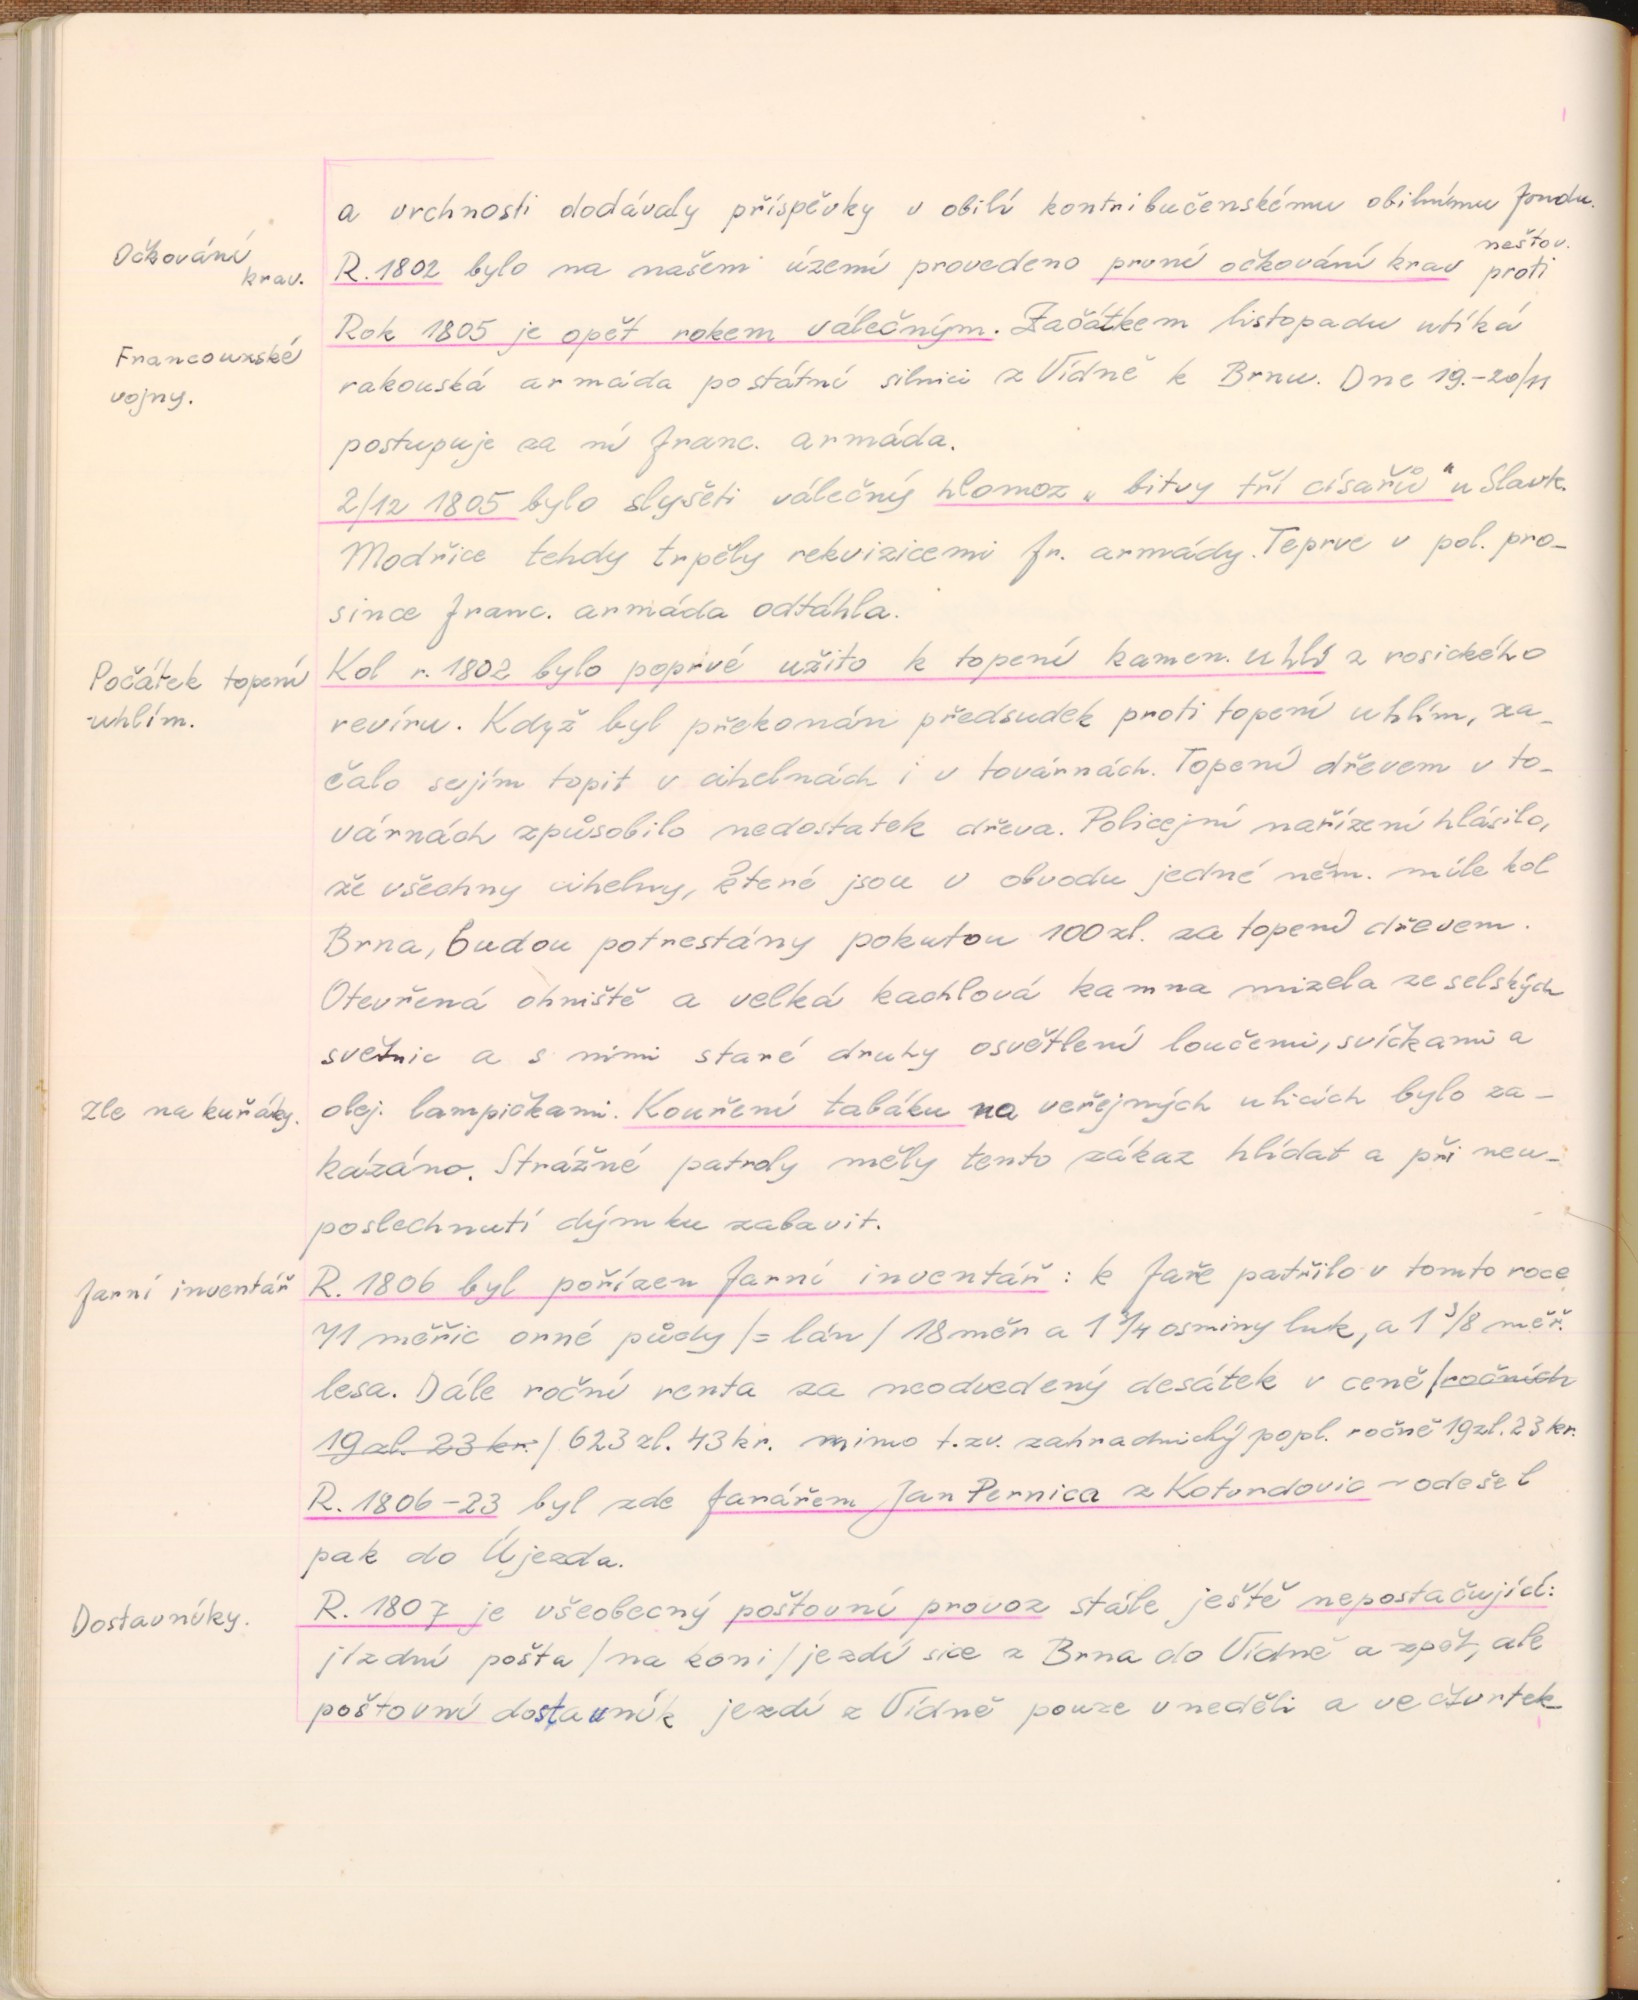 a vrchnosti dodávaly příspěvky v obilí kontribučenskému obilnímu fondu.
Očkování
krav.
R. 1802 bylo na našem území provedeno první očkování krav proti
neštov.
Francouzské
vojny.
Rok 1805 je opět rokem válečným. Začátkem listopadu utíká
rakouská armáda po státní silnici z Vídně k Brnu. Dne 19.-20/11
postupuje za ní franc. armáda.
2/12 1805 bylo slyšeti válečný hlomoz „bitvy tří císařů" u Slavk.
Modřice tehdy trpěly rekvizicemi fr. armády. Teprve v pol. pro-
since franc. armáda odtáhla.
Počátek topení
uhlím.
Kol r. 1802 bylo poprvé užito k topení kamen. uhlí z rosického
revíru. Když byl překonán předsudek proti topení uhlím, za-
čalo se jím topit v cihelnách i v továrnách. Topení dřevem v to-
várnách způsobilo nedostatek dřeva. Policejní nařízení hlásilo,
že všechny cihelny, které jsou v obvodu jedné něm. míle kol
Brna, budou potrestány pokutou 100 zl. za topení dřevem.
Otevřená ohniště a velká kachlová kamna mizela ze selských
světnic a s nimi staré druhy osvětlení loučemi, svíčkami a
Zle na kuřáky.
olej. lampičkami. Kouření tabáku na veřejných ulicích bylo za-
kázáno. Strážné patroly měly tento zákaz hlídat a při neu-
poslechnutí dýmku zabavit.
Farní inventář
R. 1806 byl pořízen farní inventář: k faře patřilo v tomto roce
71 měřic orné půdy /= lán/ 18 měr a 1 3/4 osminy luk, a 1 3/8 měř.
lesa. Dále roční renta za neodvedený desátek v ceně /ročních
19 zl. 23 kr./ 623 zl. 43 kr. mimo t.zv. zahradnický popl. ročně 19 zl. 23 kr.
R. 1806-23 byl zde farářem Jan Pernica z Kotvrdovic - odešel
pak do Újezda.
Dostavníky.
R. 1807 je všeobecný poštovní provoz stále ještě nepostačující:
jízdní pošta /na koni/ jezdí sice z Brna do Vídně a zpět, ale
poštovní dostavník jezdí z Vídně pouze v neděli a ve čtvrtek